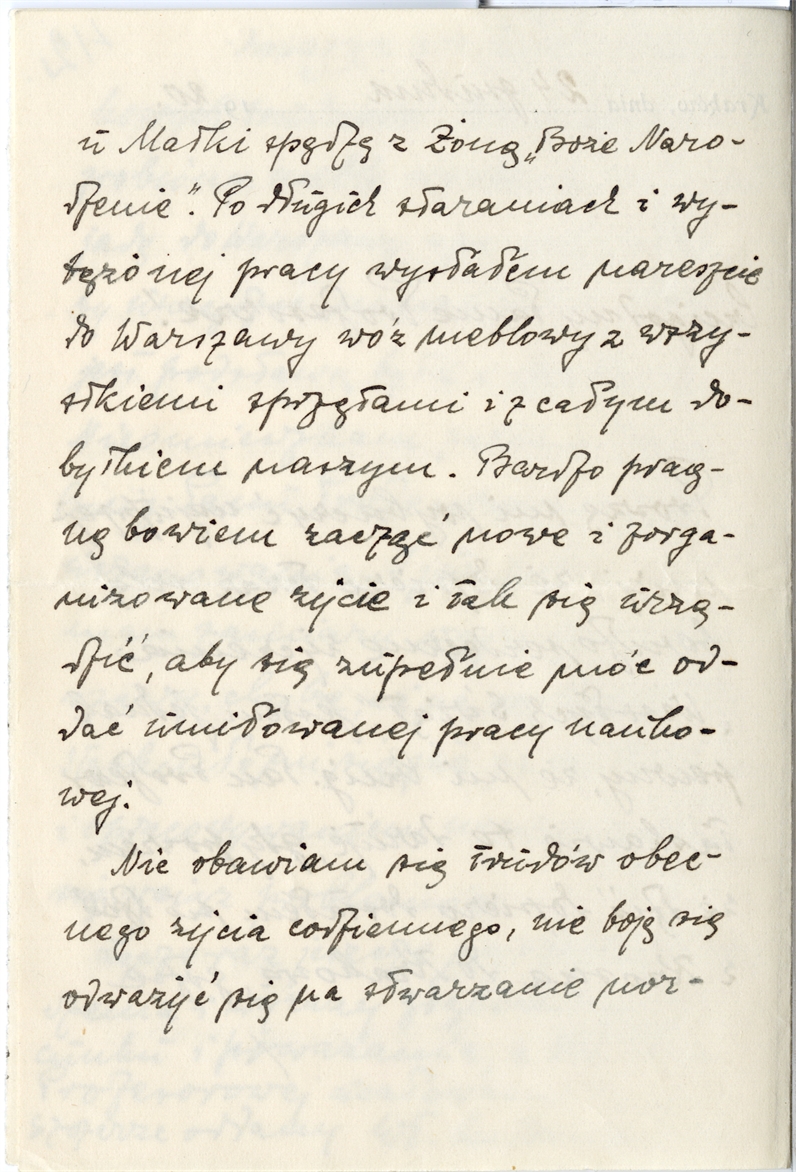 u Matki spędzę z Żoną „Boże Naro-
dzenie". Po długich staraniach i wy-
tężonej pracy wysłałem nareszcie
do Warszawy wóz meblowy z wszy-
stkiemi sprzętami i z całym do-
bytkiem naszym. Bardzo prag-
nę bowiem zacząć nowe i zorga-
nizowane życie i tak się urzą-
dzić, aby się zupełnie móc od-
dać umiłowanej pracy nauko-
wej.
Nie obawiam się trudów obec-
nego życia codziennego, nie boję się
odważyć się na stwarzanie nor-